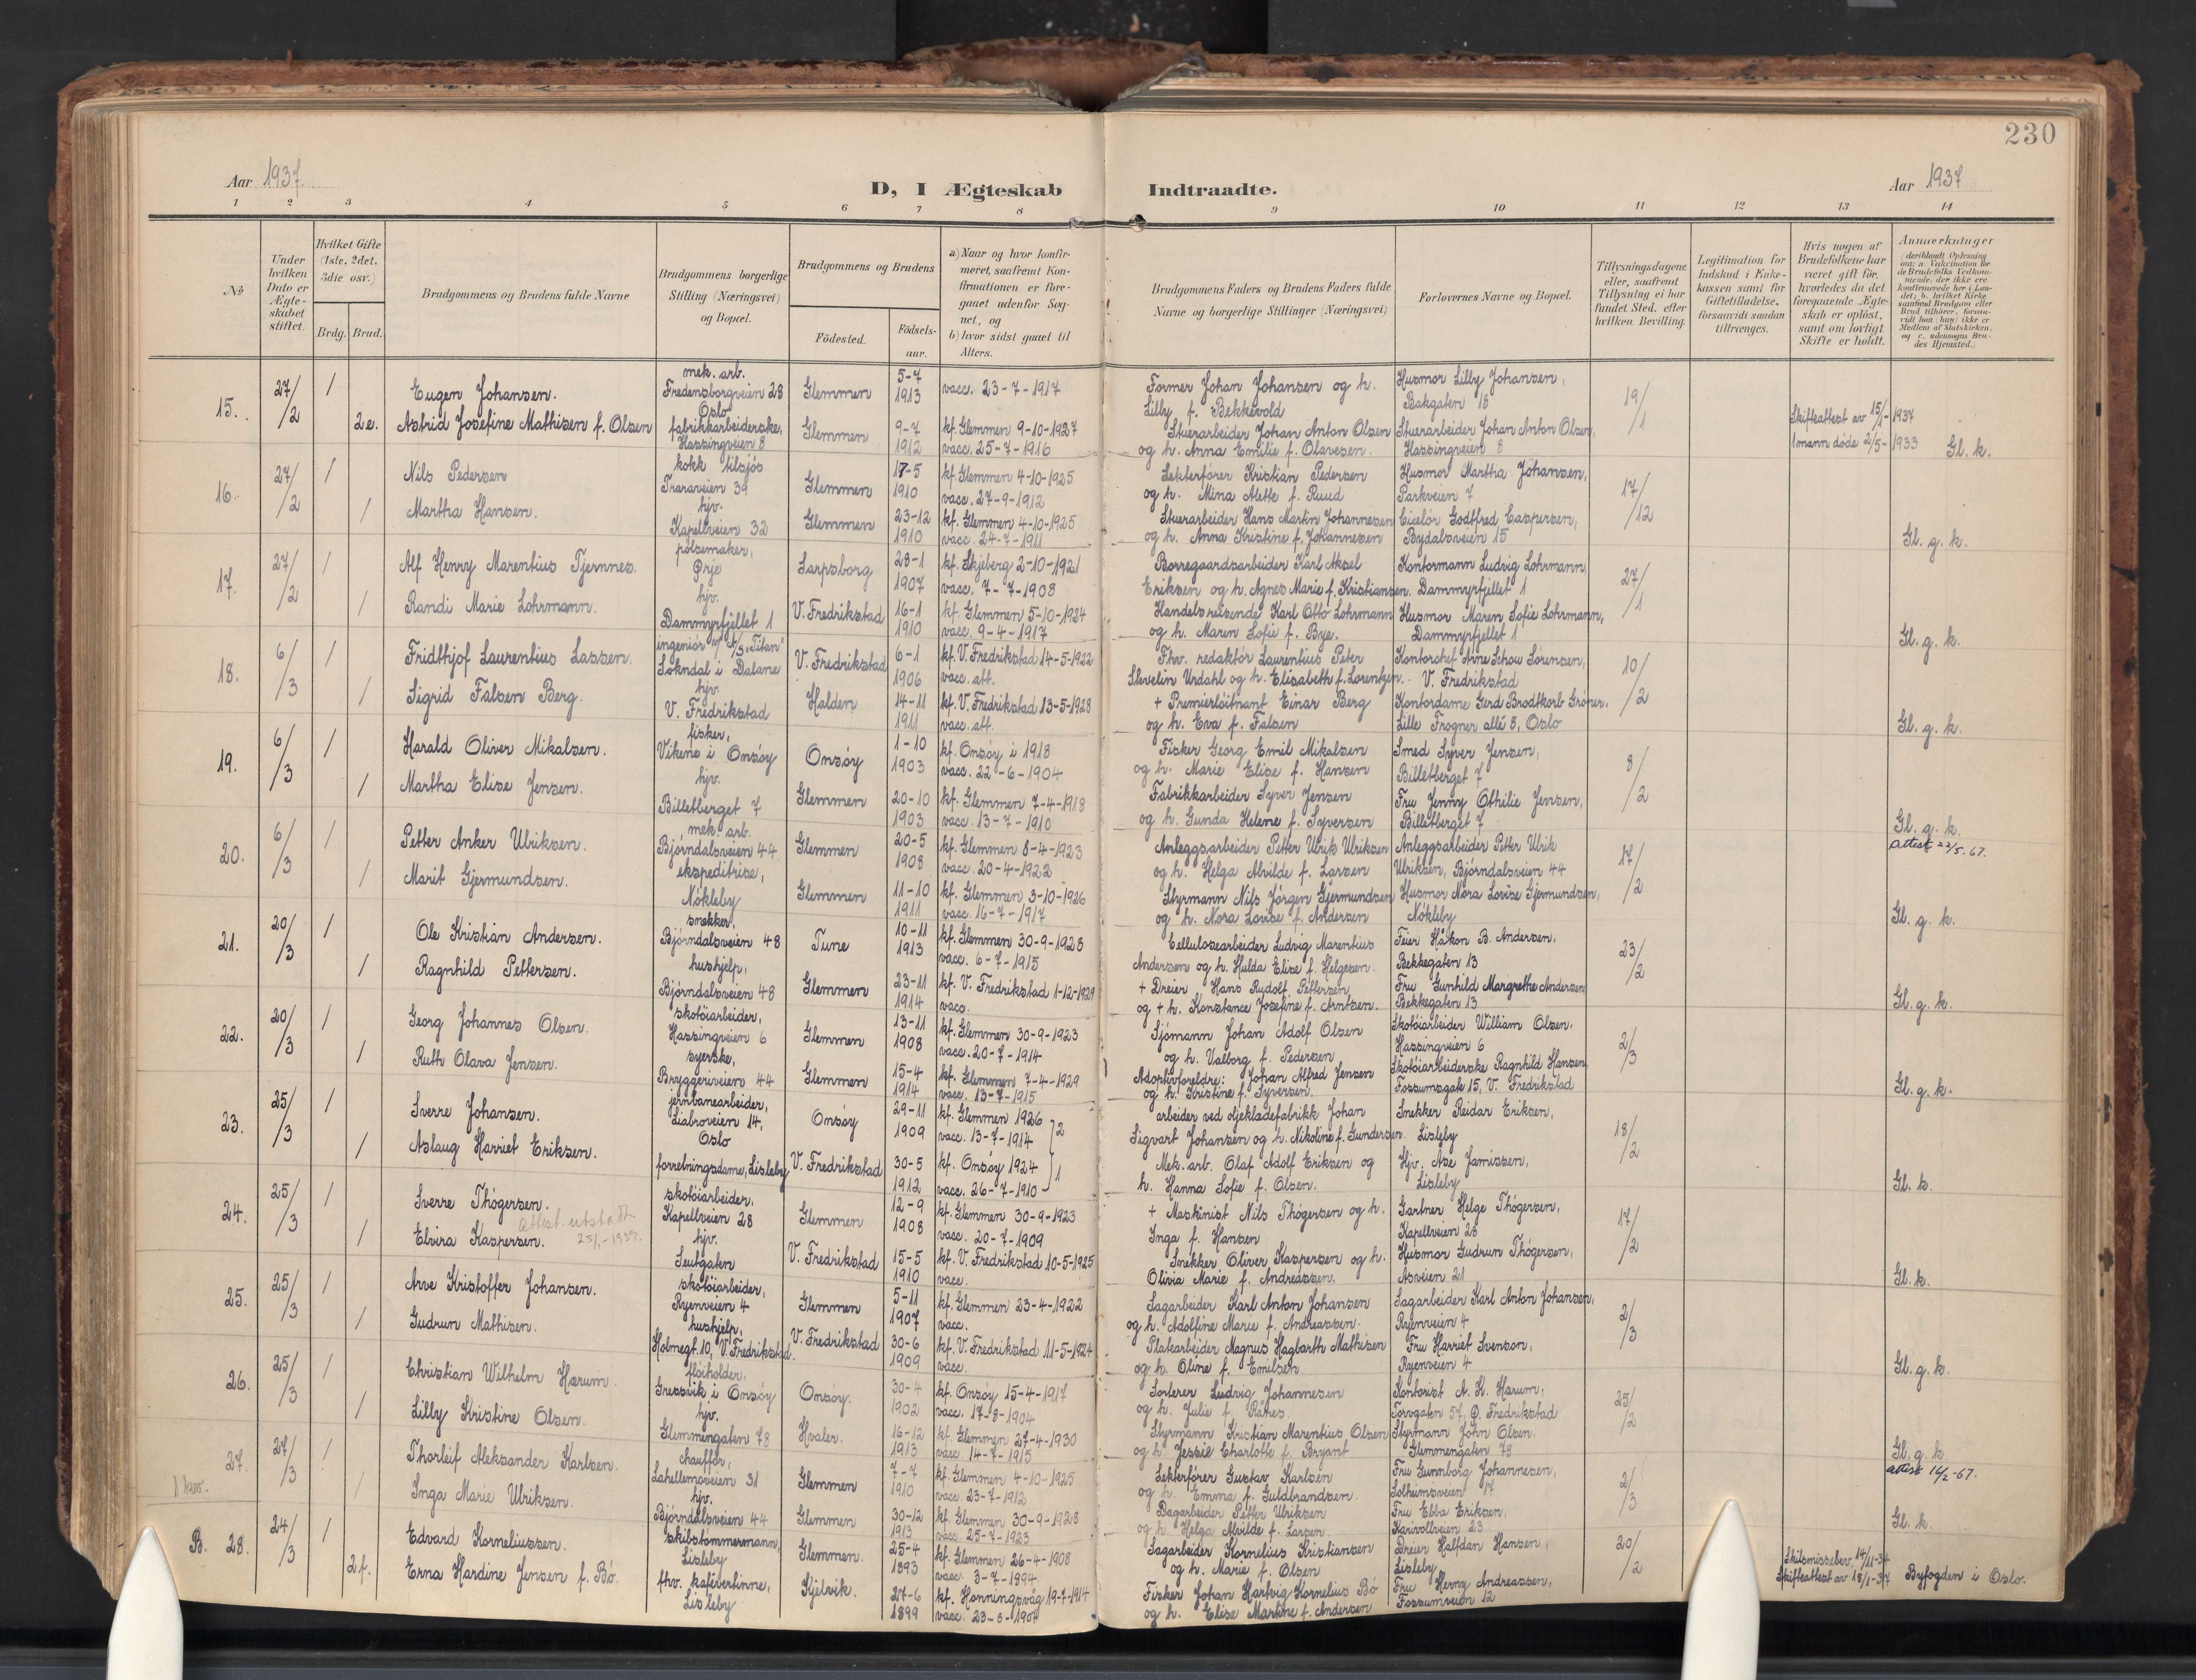 230
Aar 1937.
D, I Ægteskab Indtraadte.
Aar 1937
1 2 3 4 5 6 7 8 9 10 11 12 13 14
№
Under hvilken Dato er Ægte-skabet stiftet.
Hvilket Gifte (1ste, 2det, 3die osv.)
Brdg. Brud.
Brudgommens og Brudens fulde Navne
Brudgommens borgerlige Stilling (Næringsvei) og Bopæl.
Brudgommens og Brudens
Fødested.
Fødsels-aar.
a) Naar og hvor konfir-meret, saafremt Kon-firmationen er fore-gaaet udenfor Sog-net, og
b) hvor sidst gaaet til Alters.
Brudgommens Faders og Brudens Faders fulde Navne og borgerlige Stillinger (Næringsvei)
Forlovernes Navne og Bopæl.
Tillysningsdagene eller, saafremt Tillysning ei har fundet Sted, efter hvilken Bevilling.
Legitimation for Indskud i Enke-kassen samt for Giftetilladelse, forsaavidt saadan tiltrænges.
Hvis nogen af Brudefolkene har været gift før, hvorledes da det foregaaende Ægte-skab er opløst, samt om lovligt Skifte er holdt.
Anmerkninger (deriblandt Oplysning om: a. Vakcination for de Brudefolks Vedkom-mende, der ikke ere konfirmerede her i Lan-det; b. hvilket Kirke-samfund Brudgom eller Brud tilhører, forsaa-vidt han (hun) ikke er Medlem af Statskirken, og c. udensogns Bru-des Hjemsted.)
15. 27/2 1 Eugen Johansen. mek. arb. Fredensborgveien 28 Oslo Glemmen 5-7 1913 vacc. 23-7-1917 Former Johan Johansen og h. Lilly f. Bekkevold Husmor Lilly Johansen, Bakgaten 18 19/1
2e. Astrid Josefine Mathisen f. Olsen fabrikkarbeiderske, Hassingveien 8 Glemmen 9-7 1912 kf. Glemmen 9-10-1927 vacc. 25-7-1916 Stuerarbeider Johan Anton Olsen og h. Anna Emilie f. Olavesen. Stuerarbeider Johan Anton Olsen, Hassingveien 8 Skifteattest av 15/1-1937 1 mann døde 2/5-1933 Gl. k.
16. 27/2 1 Nils Pedersen kokk tilsjøs Traraveien 39 Glemmen 17-5 1910 kf. Glemmen 4-10-1925 vacc. 27-9-1912 Lekterfører Kristian Pedersen og h. Mina Alette f. Ruud Husmor Martha Johansen, Parkveien 7 17/12
1 Martha Hansen. hjv. Kapellveien 32 Glemmen 23-12 1910 kf. Glemmen 4-10-1925 vacc. 24-7-1911 Stuerarbeider Hans Martin Johannesen og h. Anna Kristine f. Johannesen Ciselør Godtfred Caspersen, Bydalsveien 15 Gl. g. k.
17. 27/2 1 Alf Henry Marentius Tjernnes. pølsemaker, Prje Sarpsborg 28-1 1907 kf. Skjeberg 2-10-1921 vacc. 7-7-1908 Borregaardsarbeider Karl Aksel Eriksen og h. Agnes Marie f. Kristiansen. Kontormann Ludvig Lohrmann, Dammyrfjellet 1 27/1
1 Randi Marie Lohrmann. hjv. Dammyrfjellet 1 V. Fredrikstad 16-1 1910 kf. Glemmen 5-10-1924 vacc. 9-4-1917 Handelsreisende Karl Otto Lohrmann og h. Maren Sofie f. Bye. Husmor Maren Sofie Lohrmann, Dammyrfjellet 1 Gl. g. k.
18. 6/3 1 Fridthjof Laurentius Lassen. ingeniør v/ A/S "Titan" Sokndal i Dalane V. Fredrikstad 6-1 1906 kf. V. Fredrikstad 14-5-1922 vacc. att. Fhv. redaktør Laurentius Peter Skevelin Urdahl og h. Elisabeth f. Lorentzen. Kontorchef Arne Schou Sørensen, V. Fredrikstad 10/2
1 Sigrid Falsen Berg. hjv. V. Fredrikstad Halden 14-11 1911 kf. V. Fredrikstad 13-5-1928 vacc. att. + Premierløitnant Einar Berg og h. Eva f. Falsen Kontordame Gerd Brodtkorb Grøner, Lille Frogner allé 5, Oslo Gl. g. k.
19. 6/3 1 Harald Oliver Mikalsen. fisker, Vikene i Onsøy Onsøy 1-10 1903 kf. Onsøy i 1918 vacc. 22-6-1904 Fisker Georg Emil Mikalsen og h. Marie Elise f. Hansen Smed Syver Jensen, Billetberget 7 8/2
1 Martha Elise Jensen. hjv. Billetberget 7 Glemmen 20-10 1903 kf. Glemmen 7-4-1918 vacc. 13-7-1910 Fabrikkarbeider Syver Jensen og h. Gunda Helene f. Syversen Fru Jenny Othilie Jensen, Billetberget 7 Gl. g. k.
20. 6/3 1 Petter Anker Ulriksen. mek. arb. Bjørndalsveien 44 Glemmen 20-5 1908 kf. Glemmen 8-4-1923 vacc. 20-4-1922 Anleggsarbeider Petter Ulrik Ulriksen og h. Helga Alvilde f. Larsen Anleggsarbeider Petter Ulrik Ulriksen, Bjørndalsveien 44 17/2 attest 22/5.67.
1 Marit Gjermundsen. ekspeditrise, Nøkleby Glemmen 11-10 1911 kf. Glemmen 3-10-1926 vacc. 16-7-1917 Styrmann Nils Jørgen Gjermundsen og h. Nora Lovise f. Andersen Husmor Nora Lovise Gjermundsen, Nøkleby Gl. g. k.
21. 20/3 1 Ole Kristian Andersen. snekker, Bjørndalsveien 48 Tune 10-11 1913 kf. Glemmen 30-9-1928 vacc. 6-7-1915 Cellulosearbeider Ludvig Marentius Andersen og h. Hulda Elise f. Helgesen. Feier Håkon B. Andersen, Bekkegaten 13 23/2
1 Ragnhild Pettersen. hushjelp, Bjørndalsveien 48 Glemmen 23-11 1914 kf. V. Fredrikstad 1-12-1929 vacc. + Dreier Hans Rudolf Pettersen og + h. Konstance Josefine f. Arntzen. Fru Gunhild Margrethe Andersen Bekkegaten 13 Gl. g. k.
22. 20/3 1 Georg Johannes Olsen. skotøiarbeider, Hassingveien 6 Glemmen 13-11 1908 kf. Glemmen 30-9-1923 vacc. 20-7-1914 Sjømann Johan Adolf Olsen og h. Valborg f. Pedersen Skotøiarbeider William Olsen, Hassingveien 6 2/3
1 Ruth Olava Jensen. syerske, Bryggeriveien 44 Glemmen 15-4 1914 kf. Glemmen 7-4-1929 vacc. 13-7-1915 Adoptivforeldre: Johan Alfred Jensen og h. Kristine f. Syversen. Skotøiarbeiderske Ragnhild Hansen, Fossumsgate 15, V. Fredrikstad Gl. g. k.
23. 25/3 1 Sverre Johansen. jernbanearbeider, Liabroveien 14, Oslo Onsøy 29-11 1909 kf. Glemmen 1926 vacc. 13-7-1914 2 arbeider ved oljeklædefabrikk Johan Sigvart Johansen og h. Nikoline f. Gundersen. Snekker Reidar Eriksen, Lisleby 18/2
1 Aslaug Harriet Eriksen. forretningsdame, Lisleby V. Fredrikstad 30-5 1912 kf. Onsøy 1924 vacc. 26-7-1910 1 Mek. arb. Olaf Adolf Eriksen og h. Hanna Sofie f. Olsen. Hjv. Åse Jamissen, Lisleby Gl. k.
24. 25/3 1 Sverre Thøgersen. skotøiarbeider, Kapellveien 28 Glemmen 12-9 1908 kf. Glemmen 30-9-1923 vacc. 20-7-1909 + Maskinist Nils Thøgersen og h. Inga f. Hansen Gartner Helge Thøgersen, Kapellveien 28 17/2
attest utstedt 25/1-1939.
1 Elvira Kaspersen. hjv. Leutgaten V. Fredrikstad 15-5 1910 kf. V. Fredrikstad 10-5-1925 vacc. Snekker Oliver Kaspersen og h. Olivia Marie f. Andreassen. Husmor Gudrun Thøgersen, Åsveien 21 Gl. k.
25. 25/3 1 Arve Kristoffer Johansen. skotøiarbeider, Ryenveien 4 Glemmen 5-11 1907 kf. Glemmen 23-4-1922 vacc. Sagarbeider Karl Anton Johansen og h. Adolfine Marie f. Andreassen. Sagarbeider Karl Anton Johansen, Ryenveien 4 2/3
1 Gudrun Mathisen. hushjelp, Holmegt. 10, V. Fredrikstad. V. Fredrikstad 30-6 1909 kf. V. Fredrikstad 11-5-1924 vacc. Platearbeider Magnus Hagbarth Mathisen og h. Oline f. Emilsen Fru Harriet Svenson, Ryenveien 4 Gl. g. k.
26. 25/3 1 Christian Wilhelm Harum. fløiholder, Gressvik i Onsøy Onsøy. 30-4 1902 kf. Onsøy 15-4-1917 vacc. 17-8-1904 Sorterer Ludvig Johannesen og h. Julie f. Rånes Kontorist A. K. Harum, Torvgaten 57, Ø. Fredrikstad 25/2
1 Lilly Kristine Olsen. hjv. Glemmengaten 78 Hvaler. 16-12 1913 kf. Glemmen 27-4-1930 vacc. 14-7-1915 Styrmann Kristian Marentius Olsen og h. Jessie Charlotte f. Bryant Styrmann John Olsen, Glemmengaten 78 Gl. g. k.
27. 27/3 1 Thorleif Aleksander Karlsen. chauffør, Lahellemoveien 31 Glemmen 7-7 1910 kf. Glemmen 4-10-1925 vacc. 23-7-1912 Lekterfører Gustav Karlsen og h. Emma f. Guldbrandsen. Fru Gunnborg Johannesen, Solheimsveien 17 2/3 attest 14/2-67.
1 Inga Marie Ulriksen. hjv. Bjørndalsveien 44 Glemmen 30-12 1913 kf. Glemmen 30-9-1928 vacc. 25-7-1923 Dagarbeider Petter Ulriksen og h. Helga Alvilde f. Larsen. Fru Ebba Eriksen, Karivollveien 23 Gl. k.
B. 28. 24/3 1 Edvard Korneliussen. skibstømmermann, Lisleby Glemmen. 25-4 1893 kf. Glemmen 26-4-1908 vacc. 3-7-1894 Sagarbeider Kornelius Kristiansen og h. Marie f. Olsen Dreier Halfdan Hansen, Lisleby 20/2 Skilsmissebev. 14/11-34 Skifteattest av 18/1-37 Byfogden i Oslo.
2f. Erna Hardine Jensen f. Bø. fhv. kafévertinne, Lisleby Kjelvik. 27-6 1899 kf. Honningsvåg 19-7-1914 vacc. 23-8-1901 Fisker Johan Hartvig Kornelius Bø og h. Elise Martine f. Andersen Fru Herny Andreassen, Fossumveien 12